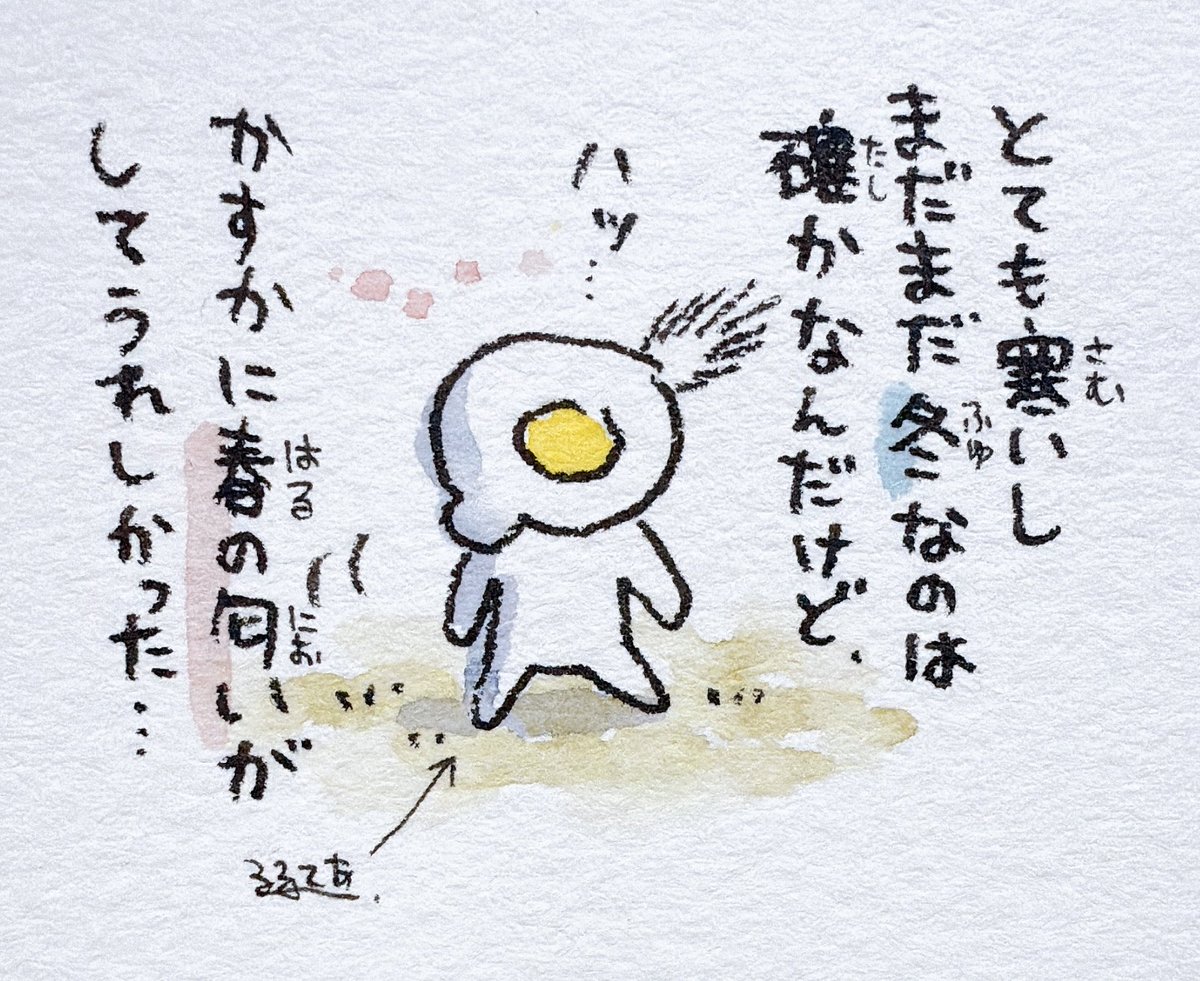 とても寒いし
さむ
まだまだ冬なのは
ふゆ
確かなんだけど、
たし
ハッ…
かすかに春の匂いが
はる
にお
してうれしかった…